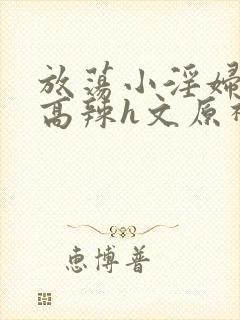 放荡小淫婦
高辣h文原
惠博普